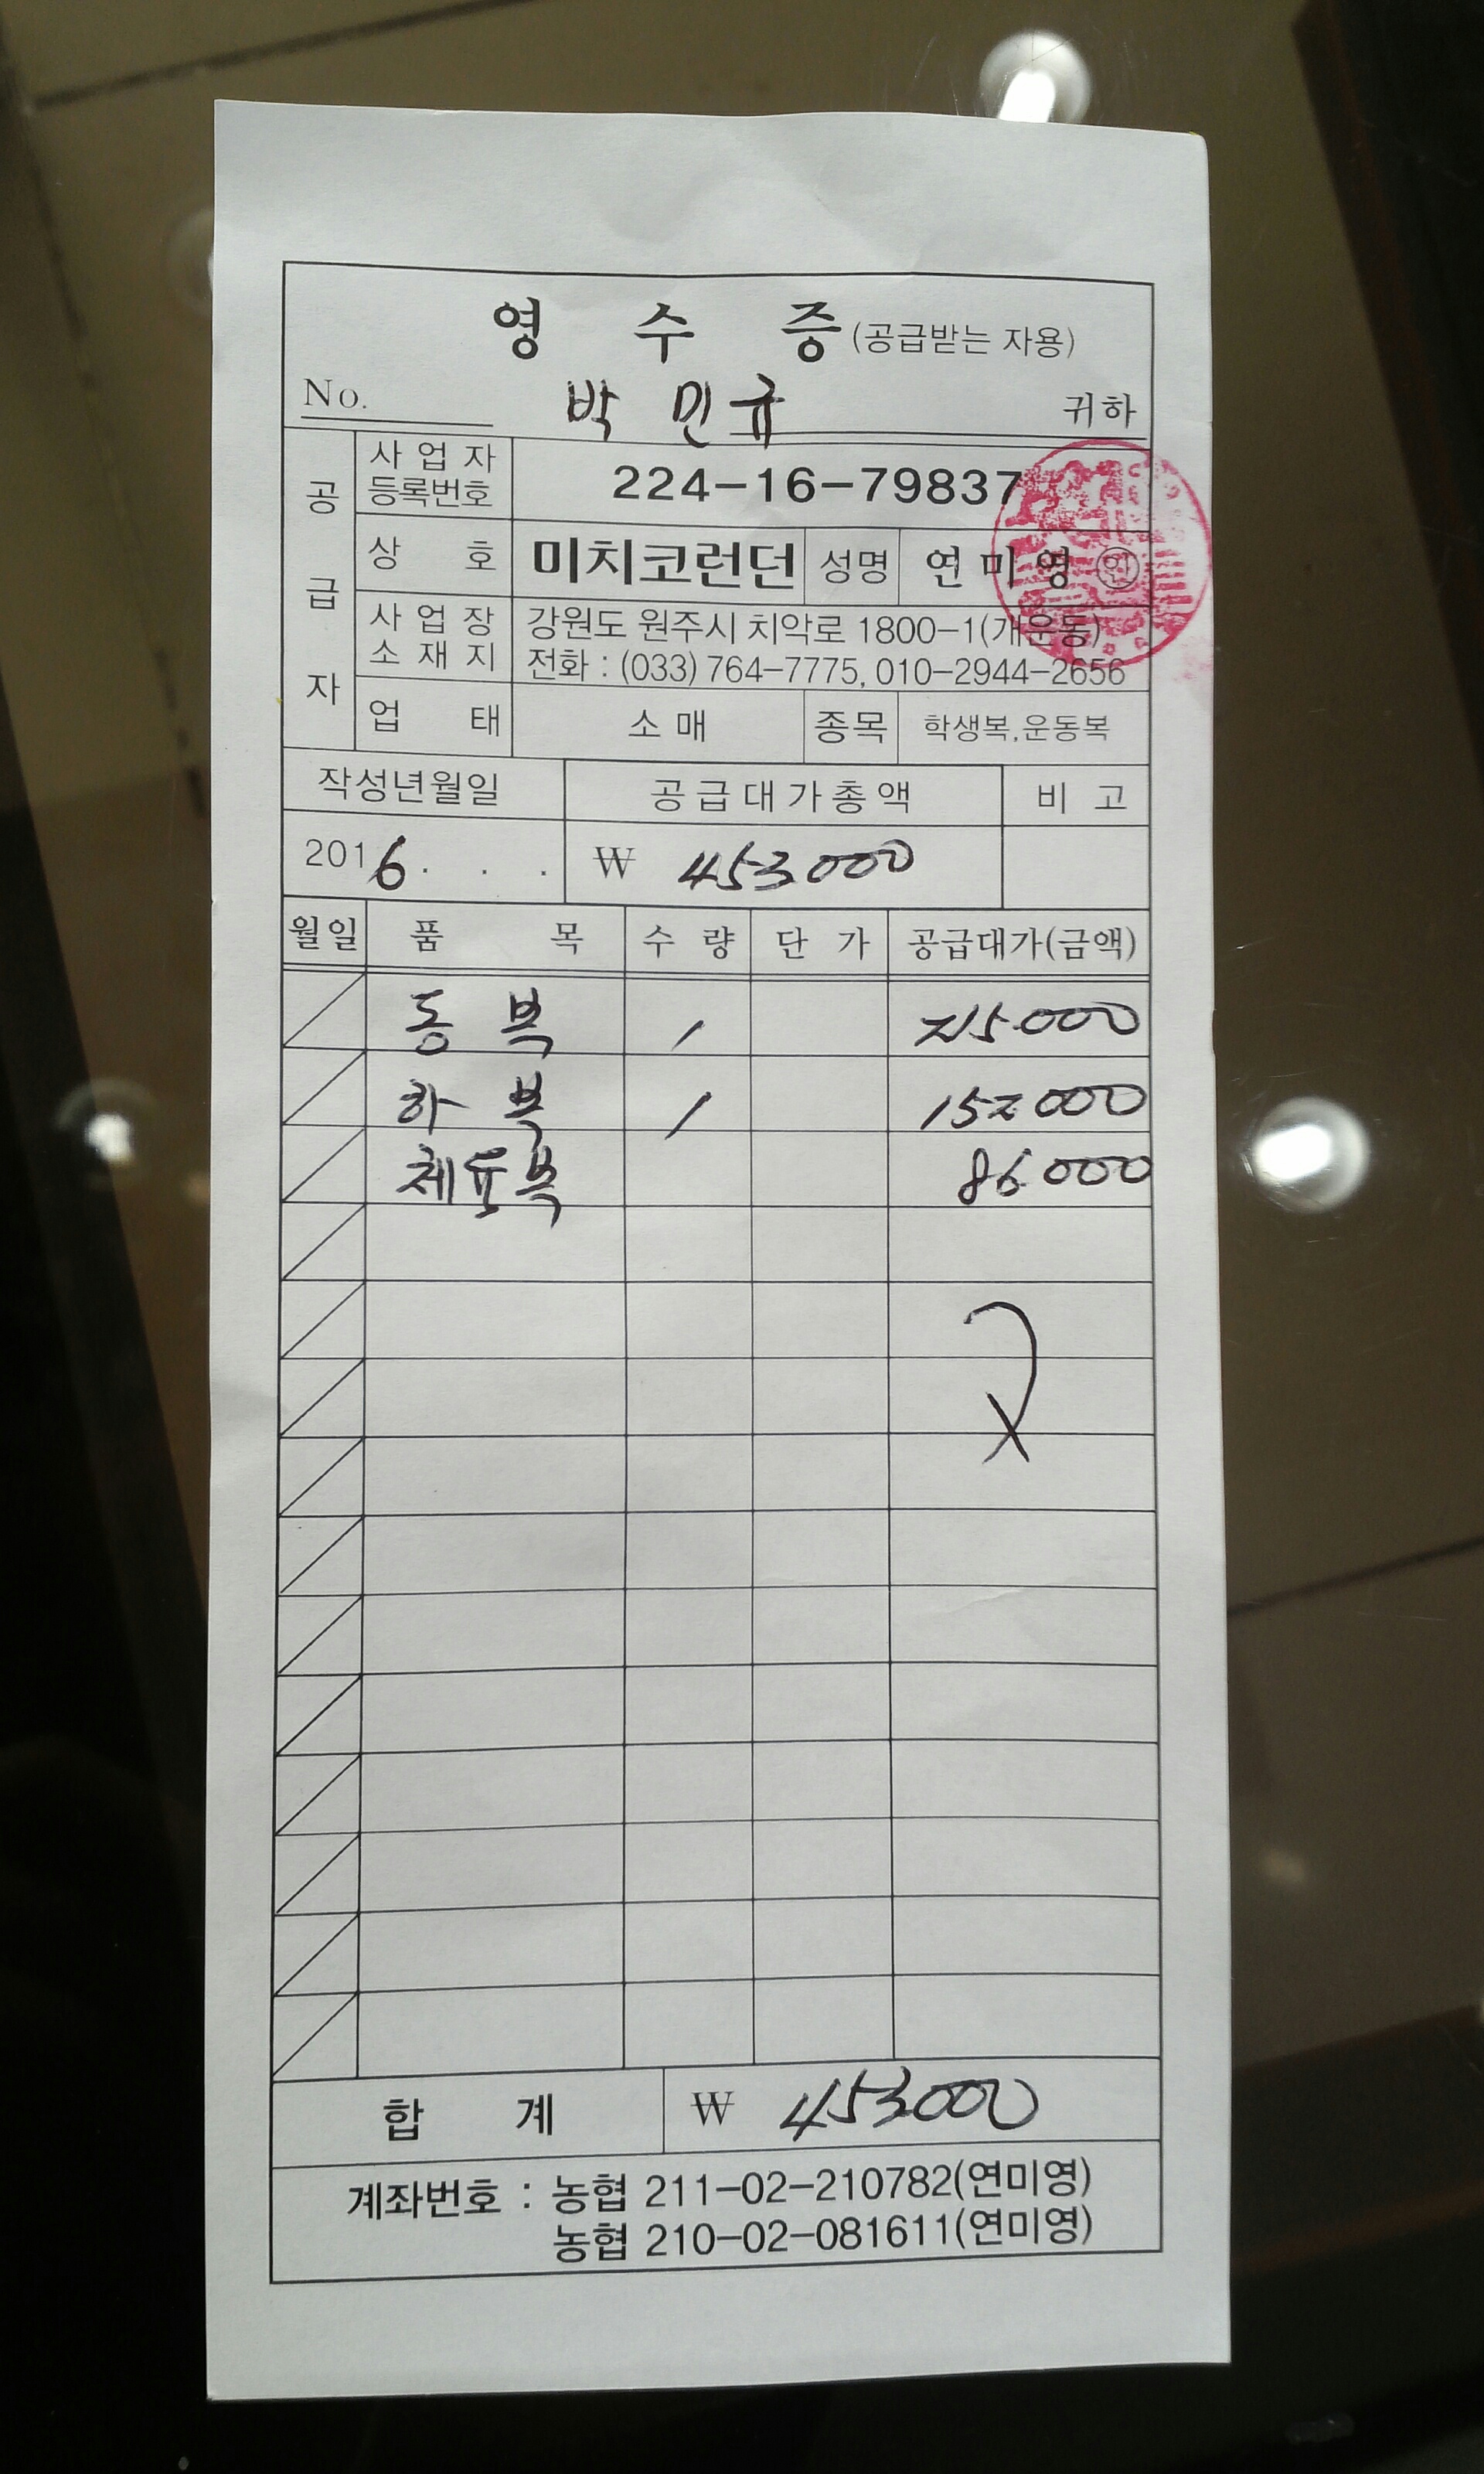 영 수 증 (공급받는 자용)
No. 박 민 규 귀하
공급자
사업자등록번호 224-16-79837
상 호 미치코런던 성명 연미영 ㊞
사업장소재지 강원도 원주시 치악로 1800-1(개운동)
전화 : (033) 764-7775, 010-2944-2656
업 태 소 매 종목 학생복,운동복
작성년월일 공급대가총액 비 고
2016. . . ₩ 453000
월일 품 목 수 량 단 가 공급대가(금액)
동 복 1 215000
하 복 1 152000
체육복 86000
합 계 ₩ 453000
계좌번호 : 농협 211-02-210782(연미영)
농협 210-02-081611(연미영)